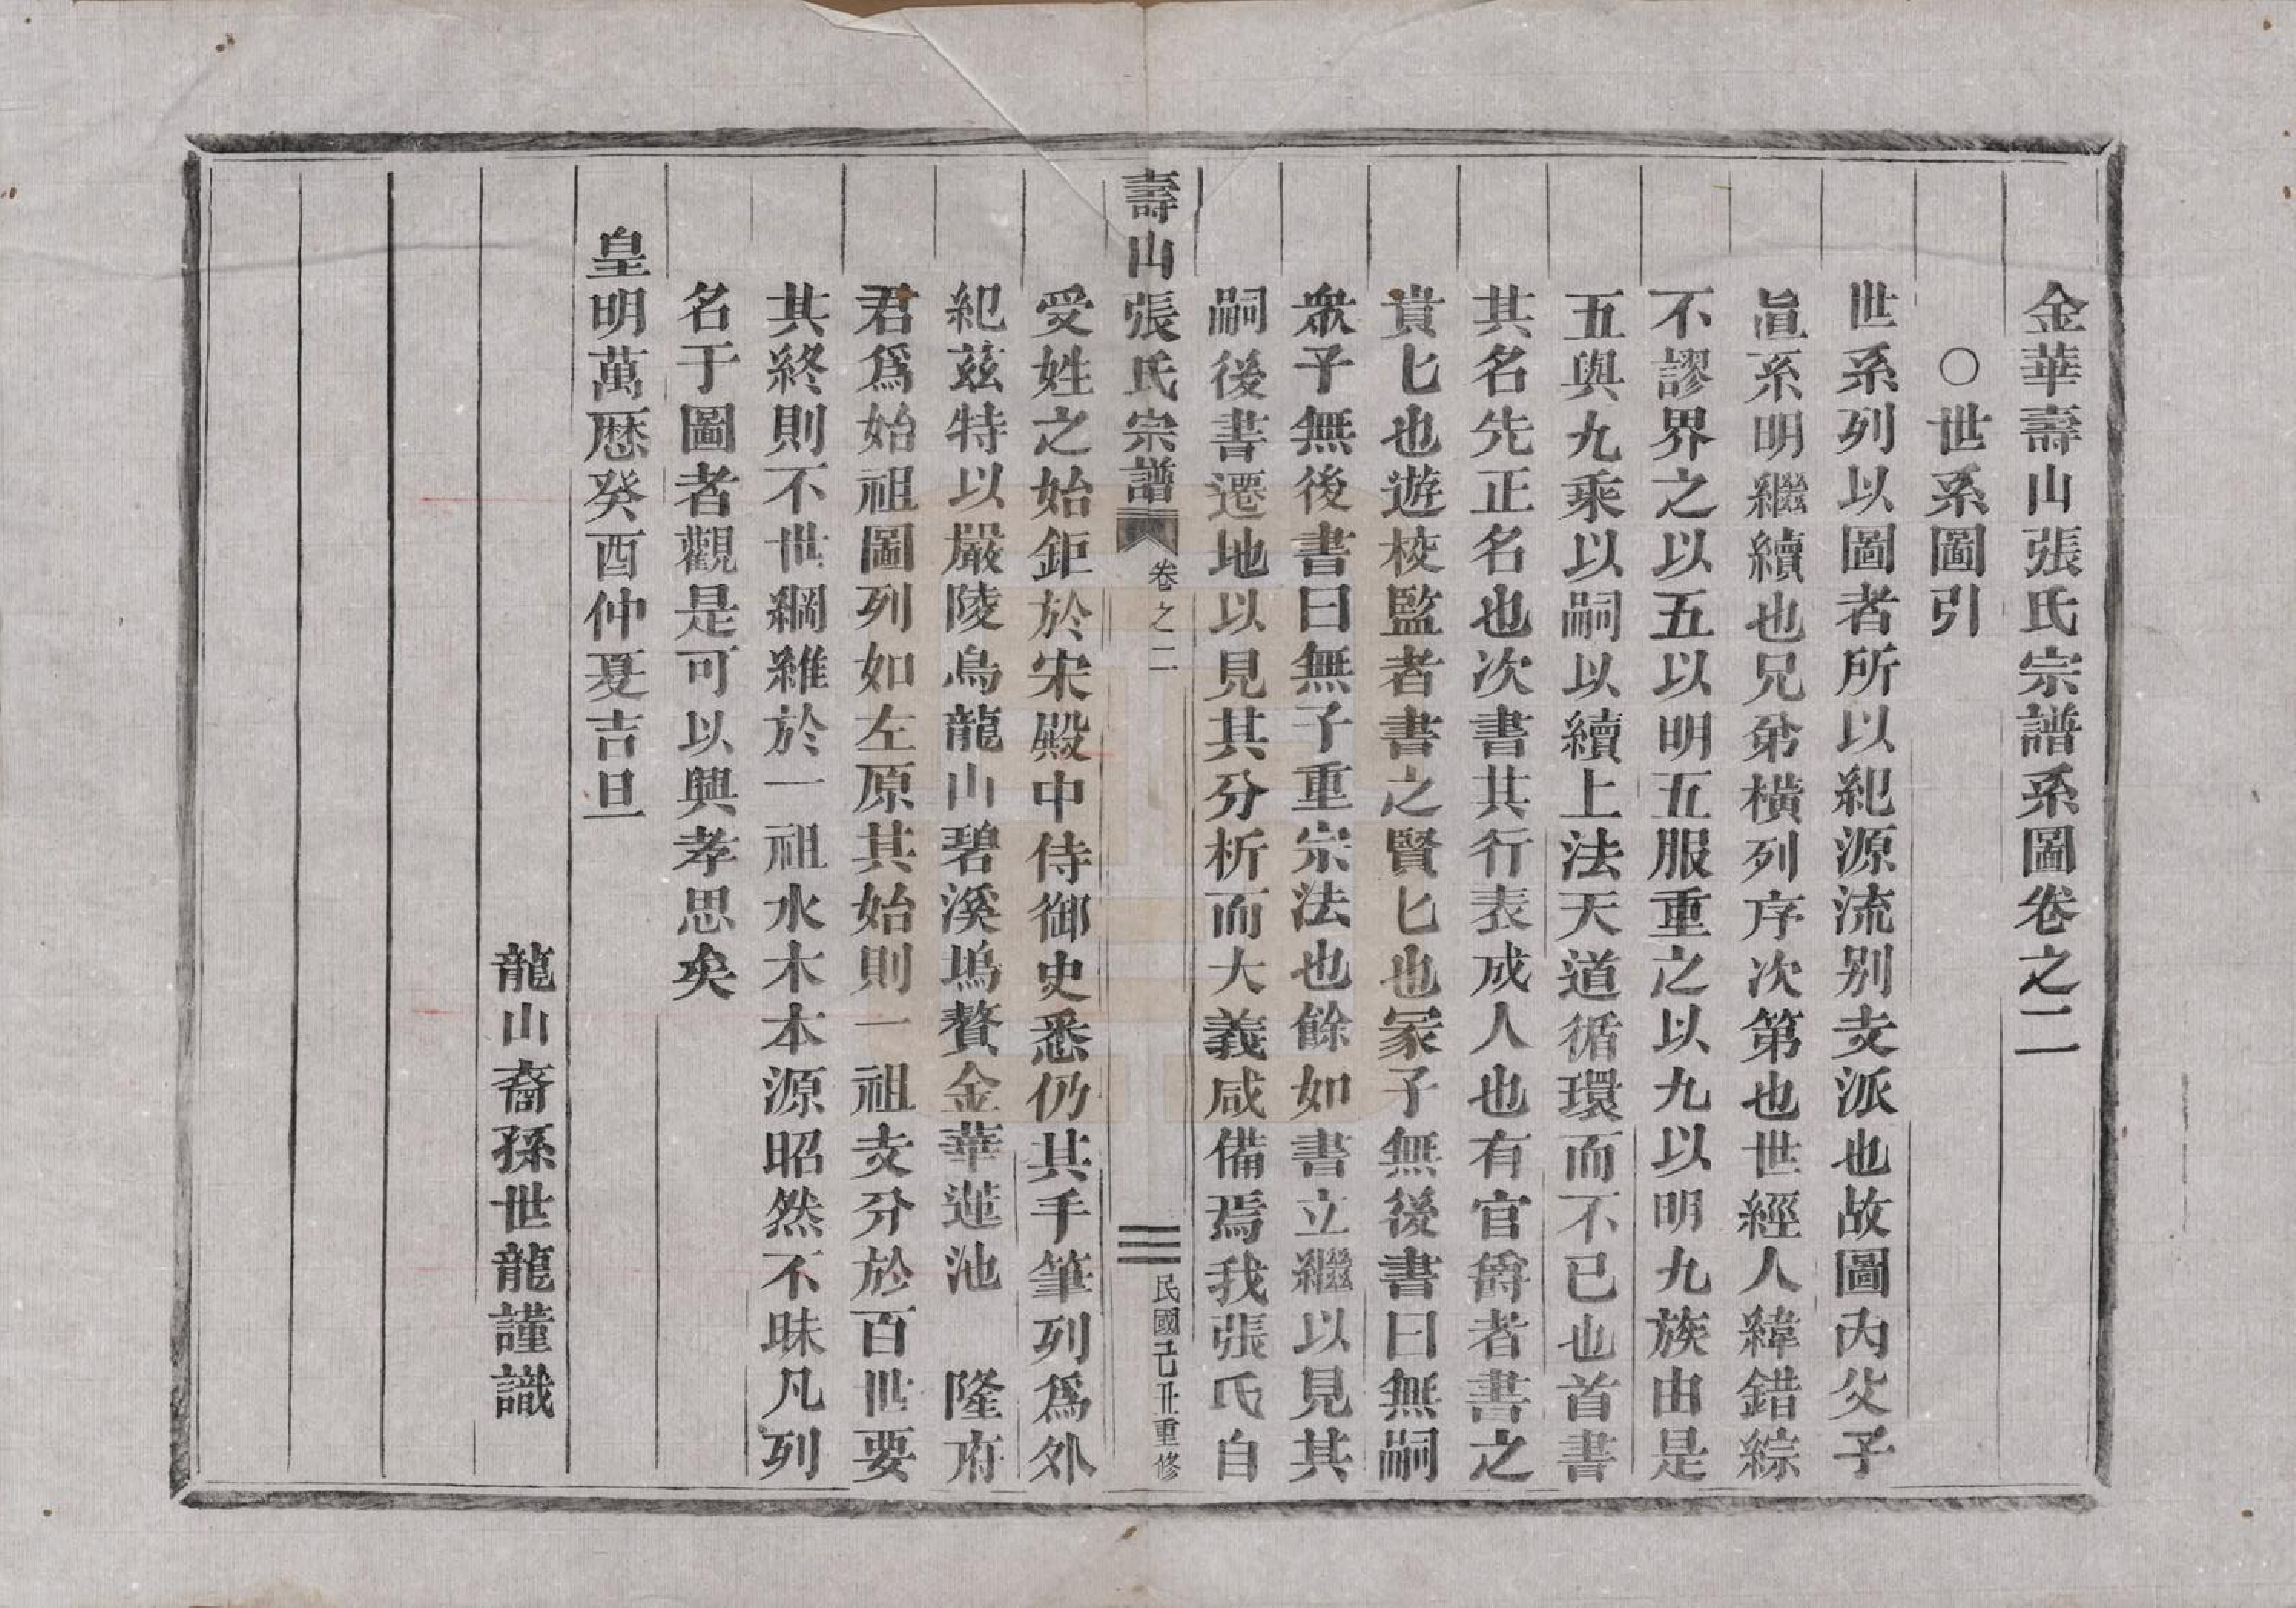 金華壽山張氏宗譜系圖卷之二
○世系圖引
世系列以圖者所以紀源流别支派也故圖内父子
直系明繼續也兄弟橫列序次第也世經人緯錯綜
不謬界之以五以明五服重之以九以明九族由是
五與九乘以嗣以續上法天道循環而不已也首書
其名先正名也次書其行表成人也有官爵者書之
貴匕也遊校監者書之賢匕也冢子無後書曰無嗣
衆子無後書曰無子重宗法也餘如書立繼以見其
嗣後書遷地以見其分析而大義咸備焉我張氏自
壽山張氏宗譜 卷之二 三 民國己丑重修
受姓之始鉅於宋殿中侍御史悉仍其手筆列為外
紀茲特以嚴陵烏龍山碧溪塢贅金華蓮池 隆府
君爲始祖圖列如左原其始則一祖支分於百世要
其終則不世綱維於一祖水木本源昭然不昧凡列
名于圖者觀是可以興孝思矣
皇明萬曆癸酉仲夏吉旦
龍山裔孫世龍謹識